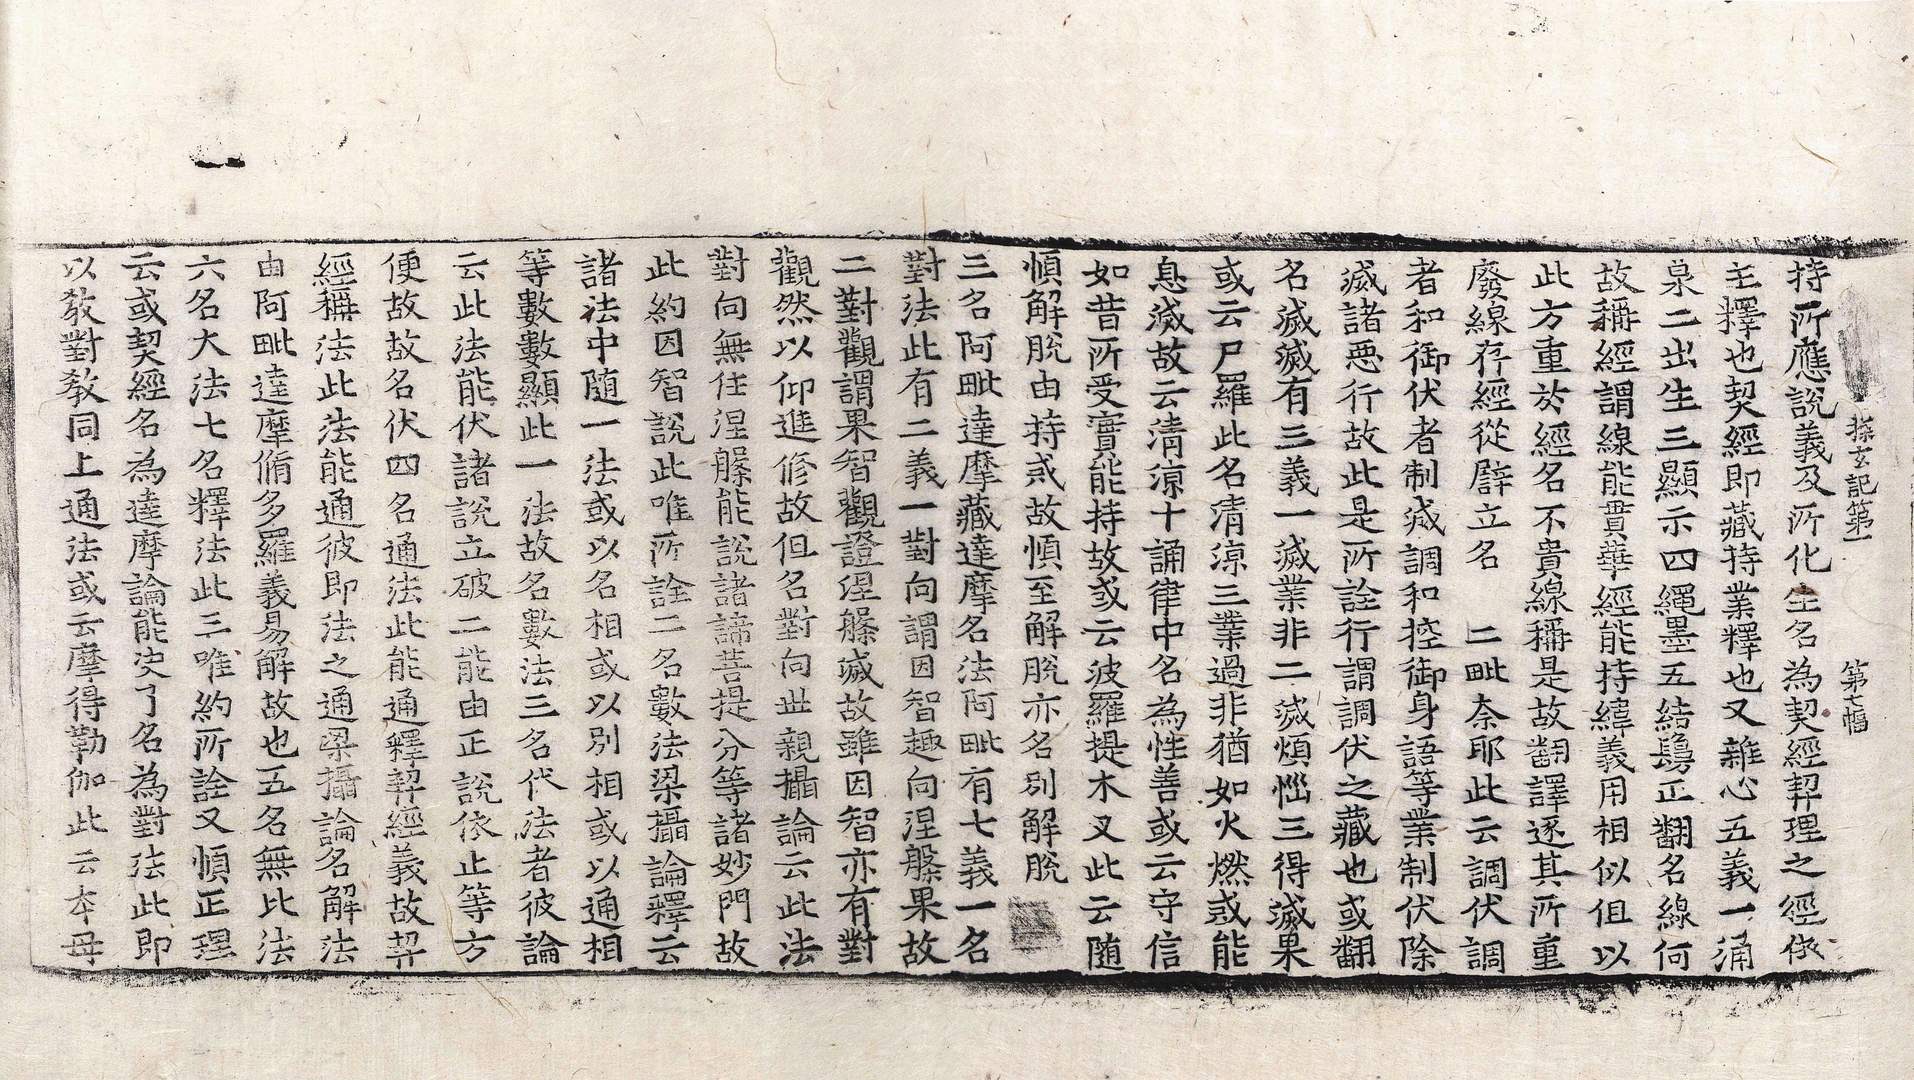 探玄記第一 第七幅
持所應說義及所化生名為契經契理之經依
主釋也契經即藏持業釋也又雜心五義一涌
泉二出生三顯示四繩墨五結鬘正翻名線何
故稱經謂線能貫華經能持緯義用相似但以
此方重於經名不貴線稱是故翻譯逐其所重
廢線存經從譬立名 二毗奈耶此云調伏調
者和御伏者制滅調和控御身語等業制伏除
滅諸惡行故此是所詮行謂調伏之藏也或翻
名滅滅有三義一滅業非二滅煩惱三得滅果
或云尸羅此名清涼三業過非猶如火燃惑能
息滅故云清涼十誦律中名為性善或云守信
如昔所受實能持故或云波羅提木叉此云随
順解脫由持戒故順至解脫亦名別解脫
三名阿毗達摩藏達摩名法阿毗有七義一名
對法此有二義一對向謂因智趣向涅槃果故
二對觀謂果智觀證涅槃滅故雖因智亦有對
觀然以仰進修故但名對向世親攝論云此法
對向無住涅槃能說諸諦菩提分等諸妙門故
此約因智說此唯所詮二名數法梁攝論釋云
諸法中随一法或以名相或以別相或以通相
等數數顯此一法故名數法三名伏法者彼論
云此法能伏諸說立破二能由正說依止等方
便故故名伏四名通法此能通釋契經義故契
經稱法此法能通彼即法之通梁攝論名解法
由阿毗達摩脩多羅義易解故也五名無比法
六名大法七名釋法此三唯約所詮又順正理
云或契經名為達摩論能決了名為對法此即
以教對教同上通法或云摩得勒伽此云本母